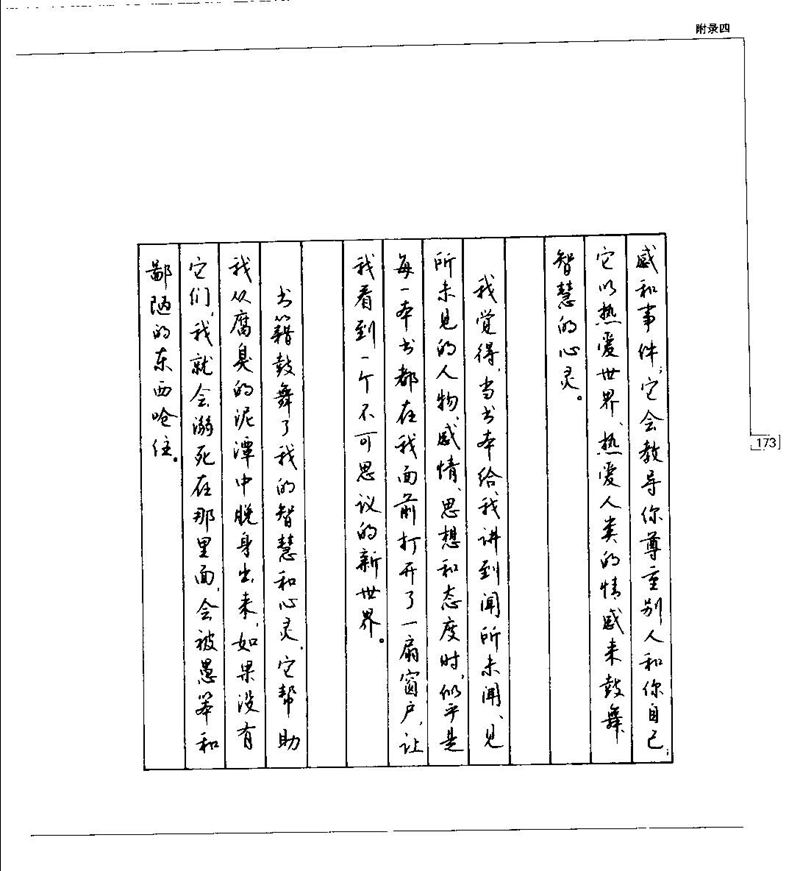 附录四
感和事件，它会教导你尊重别人和你自己；
它以热爱世界、热爱人类的情感来鼓舞
智慧的心灵。
我觉得，当书本给我讲到闻所未闻、见
所未见的人物、感情、思想和态度时，似乎是
每一本书都在我面前打开了一扇窗户，让
我看到一个不可思议的新世界。
书籍鼓舞了我的智慧和心灵，它帮助
我从腐臭的泥潭中脱身出来，如果没有
它们，我就会溺死在那里面，会被愚笨和
鄙陋的东西呛住。
173